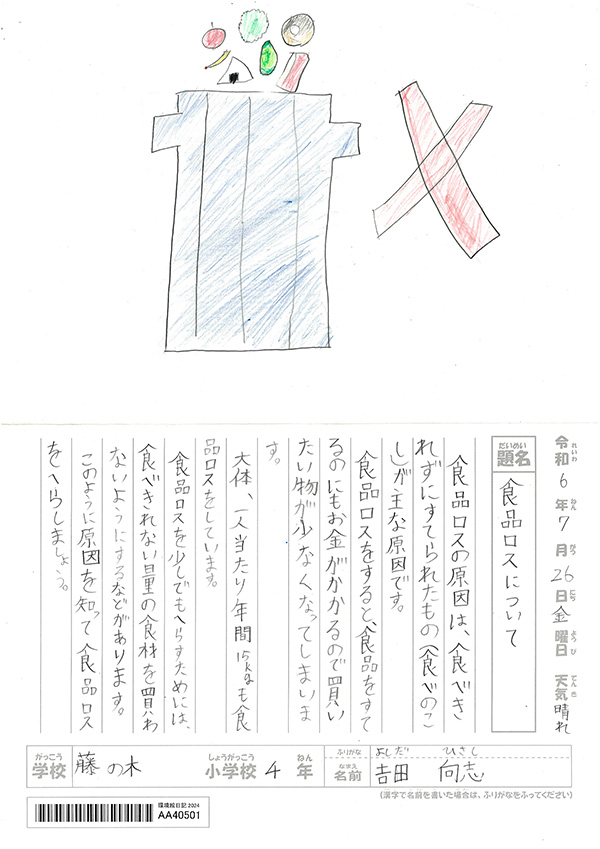 令和6年7月26日金曜日 天気晴れ
れいわ ねん がつ にち ようび てんき
だいめい
題名 食品ロスについて
食品ロスの原因は、食べき
れずにすてられたもの(食べのこ
し)が主な原因です。
食品ロスをすると、食品をすて
るのにもお金がかかるので買い
たい物が少なくなってしまいま
す。
大体、一人当たり年間15kgも食
品ロスをしています。
食品ロスを少しでもへらすためには、
食べきれない量の食材を買わ
ないようにするなどがあります。
このように原因を知って食品ロス
をへらしましょう。
がっこう しょうがっこう ねん ふりがな よしだ ひさし
学校 藤の木 小学校 4年 なまえ 名前 吉田 向志
(漢字で名前を書いた場合は、ふりがなをふってください)
環境絵日記2024
AA40501